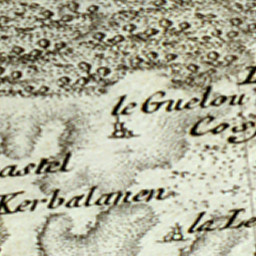 le Guelou
astel
Kerbalanen
la Le